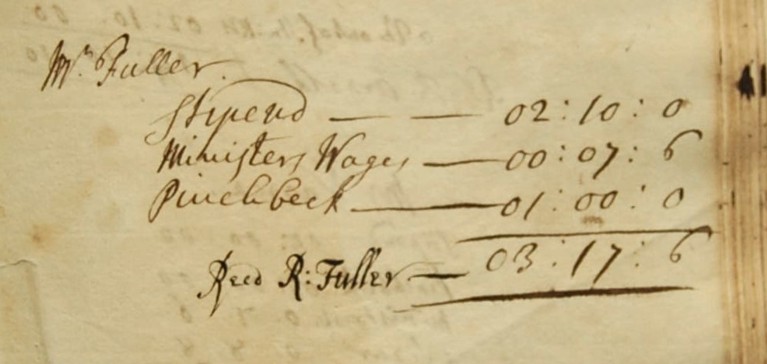 Mr. Fuller.
Stipend — — 02:10:0
Ministers Wages — 00:07:6
Pinchbeck — 01:00:0
03:17:6
Recd R: Fuller —